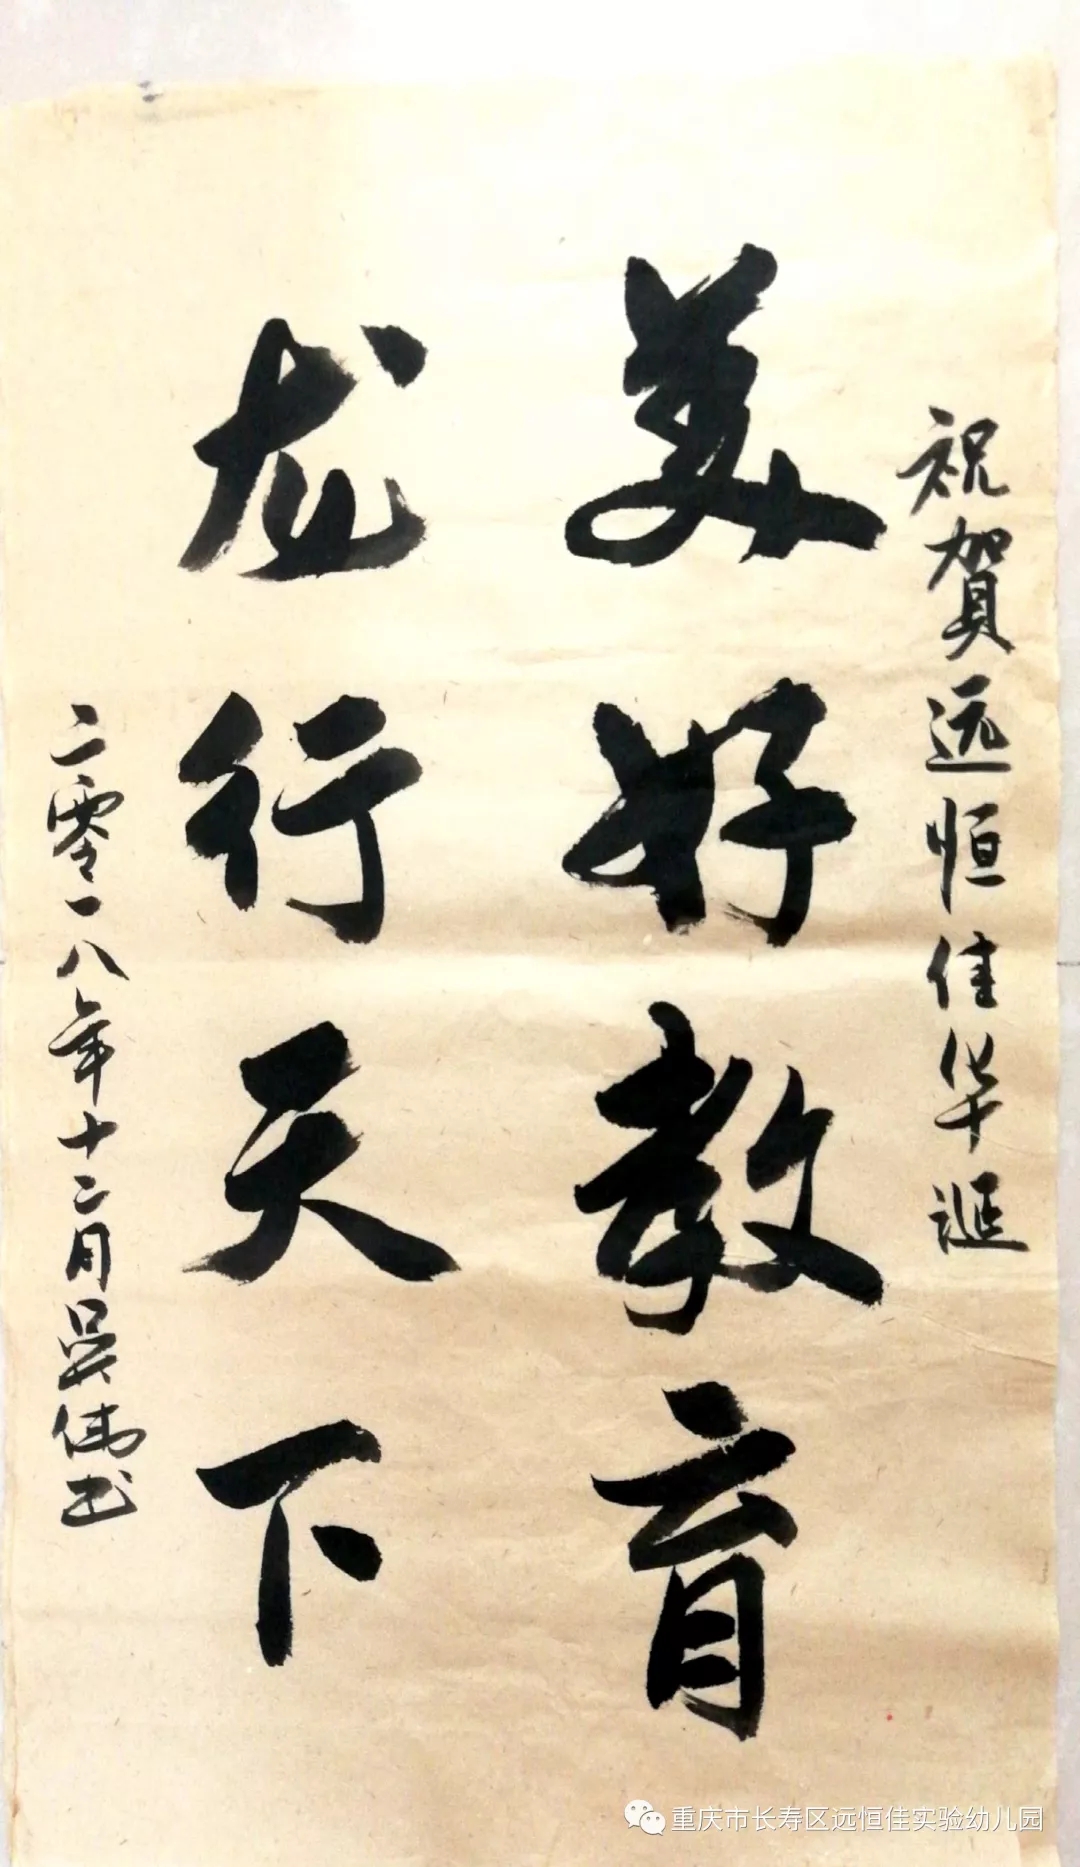 祝賀远恒佳华诞
美好教育
龙行天下
二零一八年十二月吴伟书
重庆市长寿区远恒佳实验幼儿园